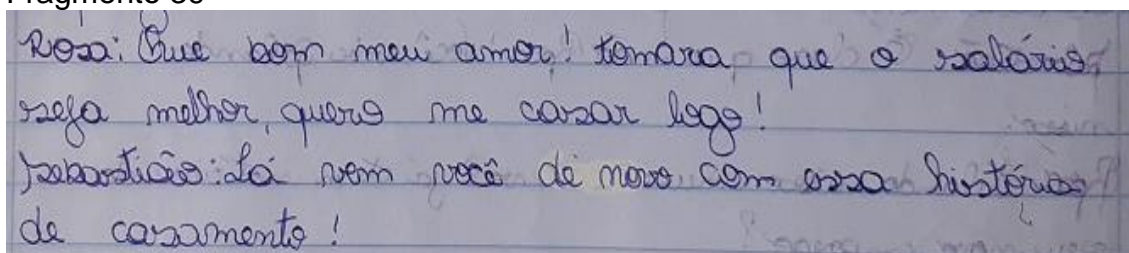 Rosa: Que bom meu amor! tomara que o salário
seja melhor, quero me casar logo!
Sebastião: Lá vem você de novo com essa história
de casamento!